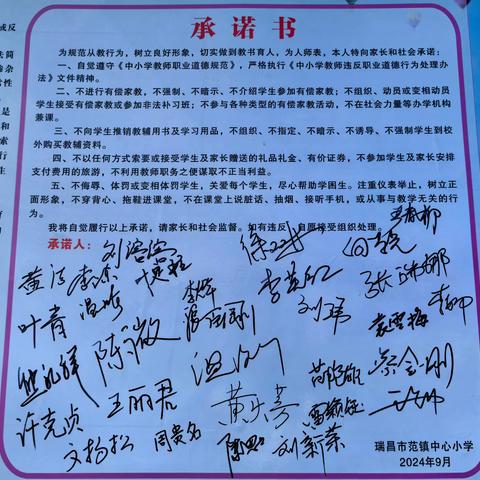 承诺书
为规范从教行为，树立良好形象，切实做到教书育人，为人师表，本人特向家长和社会承诺：
一、自觉遵守《中小学教师职业道德规范》，严格执行《中小学教师违反职业道德行为处理办
法》文件精神。
二、不进行有偿家教，不强制、不暗示、不介绍学生参加有偿家教；不组织、动员或变相动员
学生接受有偿家教或参加非法补习班；不参与各种类型的有偿家教活动，不在社会力量等办学机构
兼课。
三、不向学生推销教辅用书及学习用品，不组织、不指定、不暗示、不诱导、不强制学生到校
外购买教辅资料。
四、不以任何方式索要或接受学生及家长赠送的礼品礼金、有价证券，不参加学生及家长安排
支付费用的旅游，不利用教师职务之便谋取不正当利益。
五、不侮辱、体罚或变相体罚学生，关爱每个学生，尽心帮助学困生。注重仪表举止，树立正
面形象，不穿背心、拖鞋进课堂，不在课堂上说脏话、抽烟、接听手机，或从事与教学无关的行
为。
我将自觉履行以上承诺，请家长和社会监督。如有违反，自愿接受组织处理。
承诺人：
叶青
陈微
王丽君
许克贞
文杨松
周贵名
刘新荣
瑞昌市范镇中心小学
2024年9月